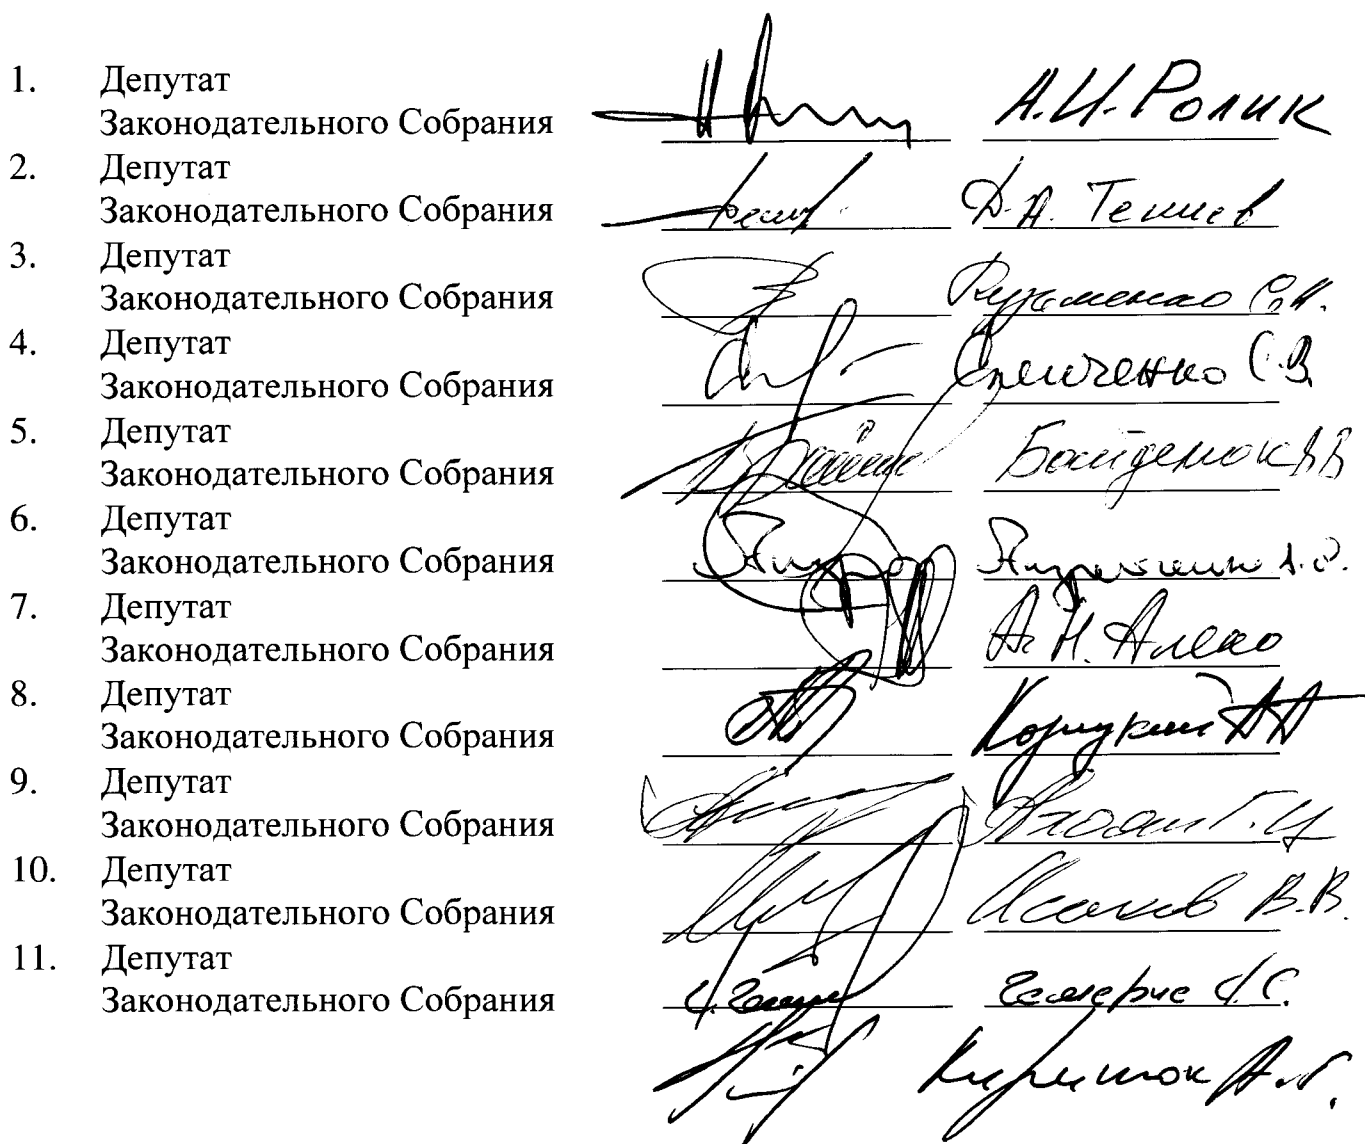 1. Депутат
Законодательного Собрания А.И. Ролик
2. Депутат
Законодательного Собрания Д.А. Текиев
3. Депутат
Законодательного Собрания Кузьменко С.И.
4. Депутат
Законодательного Собрания Слепченко С.В.
5. Депутат
Законодательного Собрания Байденюк В.В.
6. Депутат
Законодательного Собрания
7. Депутат
Законодательного Собрания А.Н. Алеко
8. Депутат
Законодательного Собрания Корчукин А.А.
9. Депутат
Законодательного Собрания Ахоян Г.Ц.
10. Депутат
Законодательного Собрания Исаков В.В.
11. Депутат
Законодательного Собрания